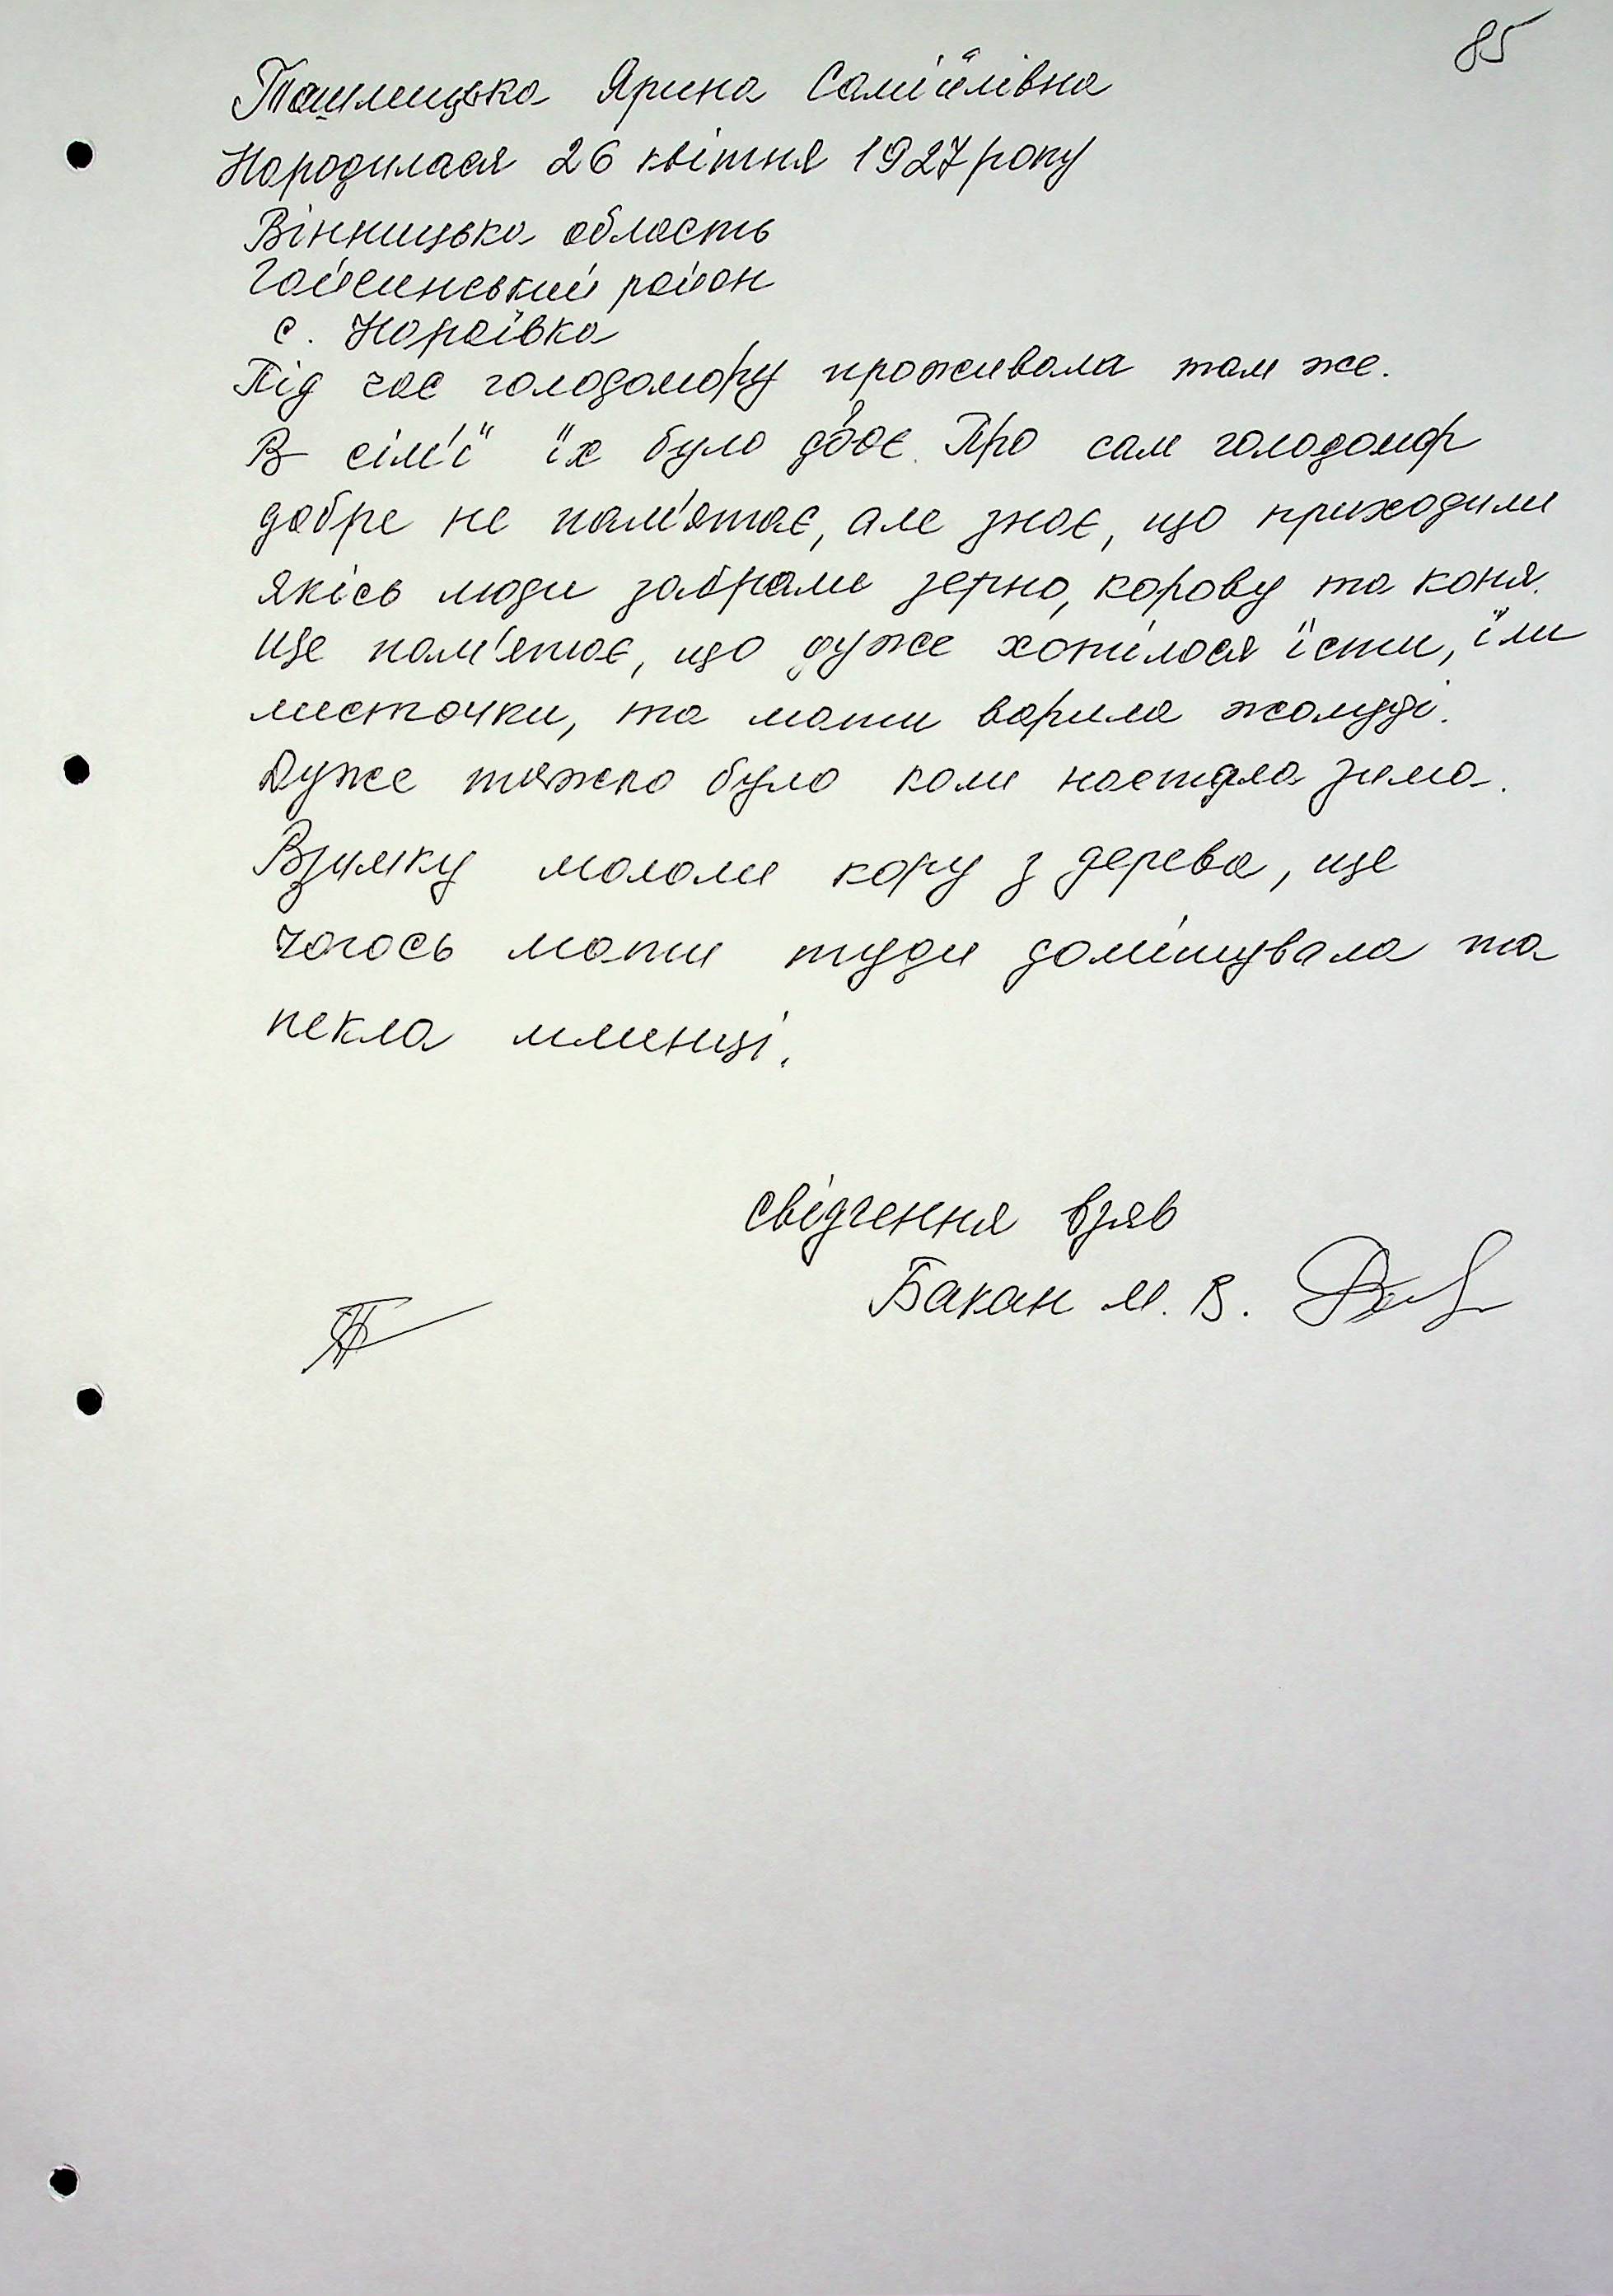 85
Ташлицька Ярина Самійлівна
Народилася 26 квітня 1927 року
Вінницька область
Гайсинський район
с. Нараївка
Під час голодомору проживала там же.
В сім'ї їх було двоє. Про сам голодомор
добре не пам'ятає, але знає, що приходили
якісь люди забрали зерно, корову та коня.
Ще пам'ятає, що дуже хотілося їсти, їли
листочки, та мати варила жолуді.
Дуже тяжко було коли настала зима.
Взимку мололи кору з дерева, ще
чогось мати туди домішувала та
пекла млинці.
свідчення взяв
Бакан М. В.